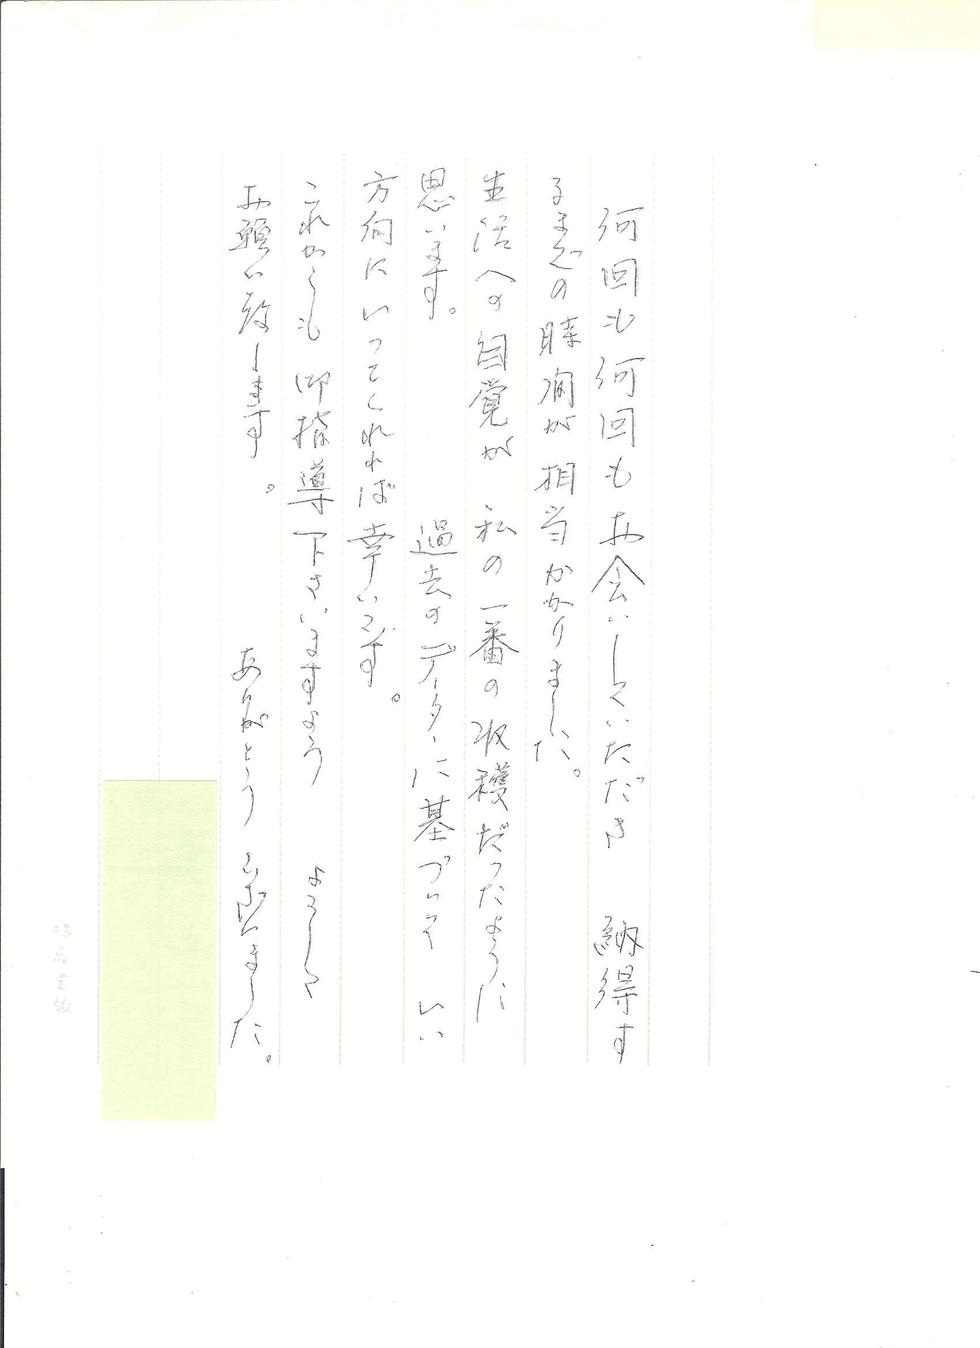 何回も何回もお会いしていただき 納得す
るまでの時間が相当かかりました。
生活への自覚が 私の一番の収穫だったように
思います。 過去のデーターに基づいて いい
方向にいってくれれば幸いです。
これからも御指導下さいますよう よろしく
お願い致します。 ありがとうございました。